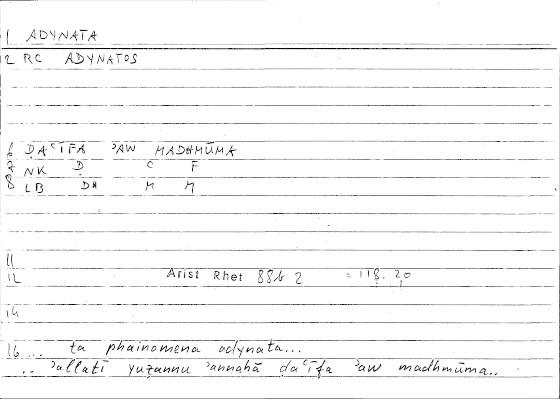 1 ADYNATA
2 RC ADYNATOS
ḌAʿĪFA ʾAW MADHMŪMA
NK Ḍ C F
LB DH M M
11
12 Arist Rhet 88b 2 = 118. 20
14
16 ... ta phainomena adynata...
.. ʾallatī yuẓannu ʾannahā ḍaʿīfa ʾaw madhmūma..